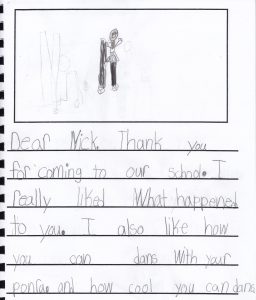 Dear Nick. Thank you
for coming to our school. I
really liked What happened
to you. I also like how
you can dans With your
and how cool you can dans